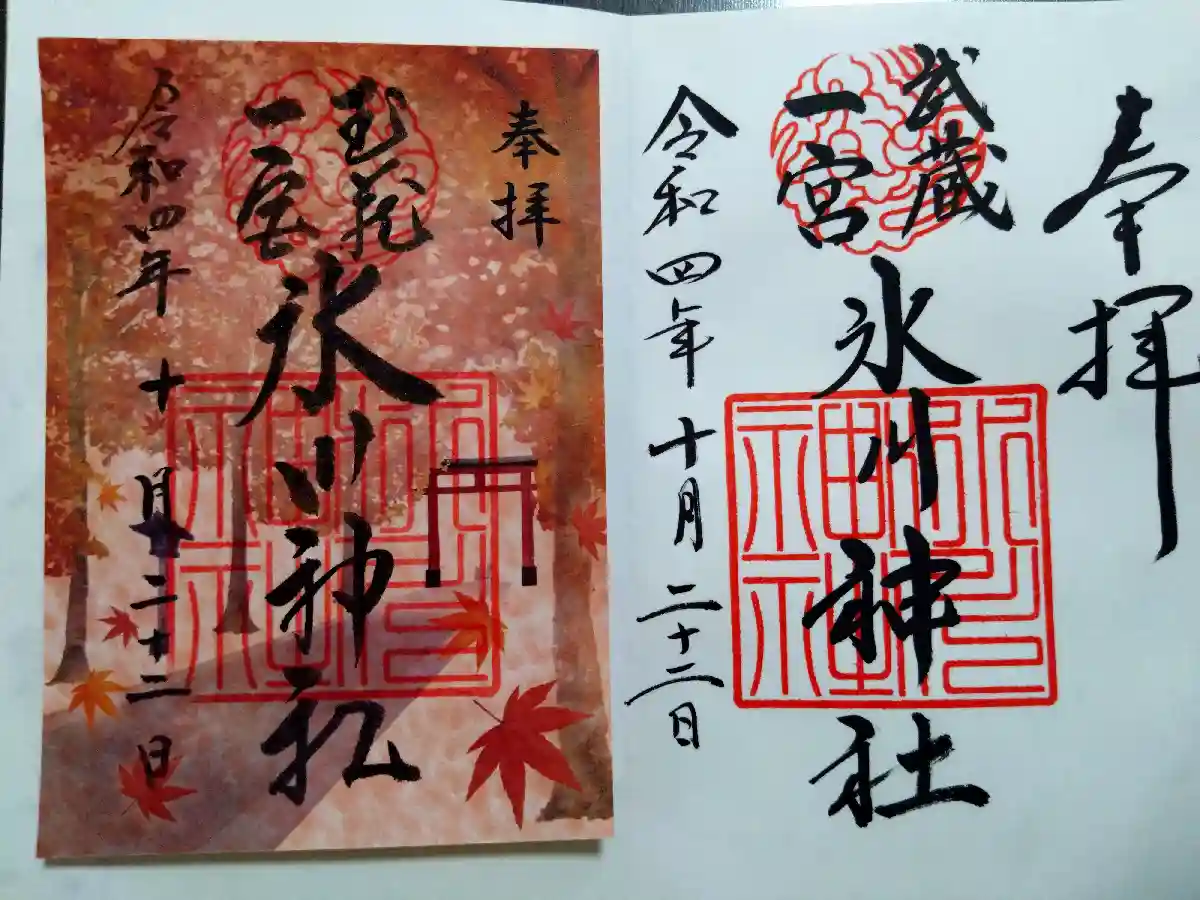 奉拝
武蔵
一宮
氷川神社
令和四年十月二十二日
奉拝
武蔵
一宮
氷川神社
令和四年十月二十二日
氷川
神社
氷川
神社